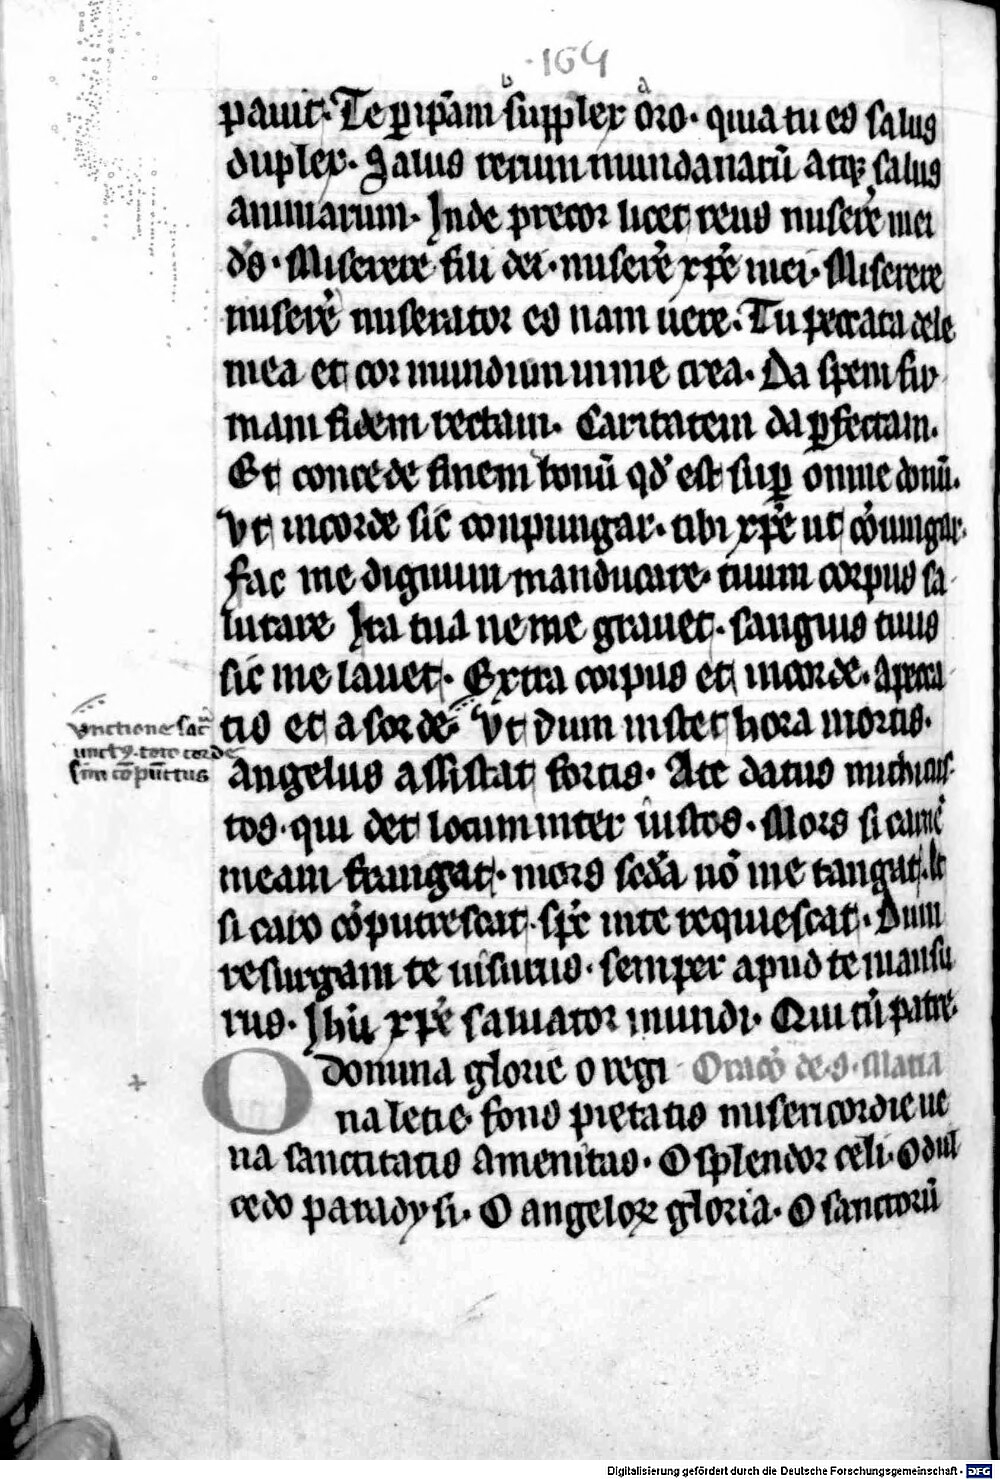 ·164
b a
pauit· Te p̱ ip̄am supplex oro· quia tu es salus
duplex· Salus rerum mundanarū atqꝫ salus
animarum· Inde precor licet reus miserē mei
ds̄· Miserere fili dei· miserē xp̄e mei· Miserere
miserē miserator es nam uere· Tu peccata dele
mea et cor mundum in me crea· Da spem fir
mam fidem rectam· Caritatem da ꝑfectam·
Et concede finem bonū qd̄ est suꝑ omne donū·
Vt in corde sic conpungar· tibi xp̄e ut cōiungar·
fac me dignum manducare· tuum corpus sa
lutare Ita tua ne me grauet· sanguis tuus
sic me lauet· Extra corpus et in corde· a pecca
tis et a sorde· Vt dum instet hora mortis·
Vnctione sac̄
unctꝯ· toto corde
sim cōpūctus
angelus assistat fortis· Ate datus michi cus
tos· qui det locum inter iustos· Mors si carnē
meam frangat· mors scd̄a nō me tangat· Et
si caro cōputrescat· sp̄c in te requiescat· Dum
resurgam te uisurus· semper apud te mansu
rus· Ihū xp̄e saluator mundi· Qui cū patre·
O domina glorie o regi Oracō de s· Maria
na letie· fons pietatis misericordie ue
+
na sanctitatis amenitas· O splendor celi· O dul
cedo paradysi· O angeloꝝ gloria· O sanctorū
Digitalisierung gefördert durch die Deutsche Forschungsgemeinschaft - DFG